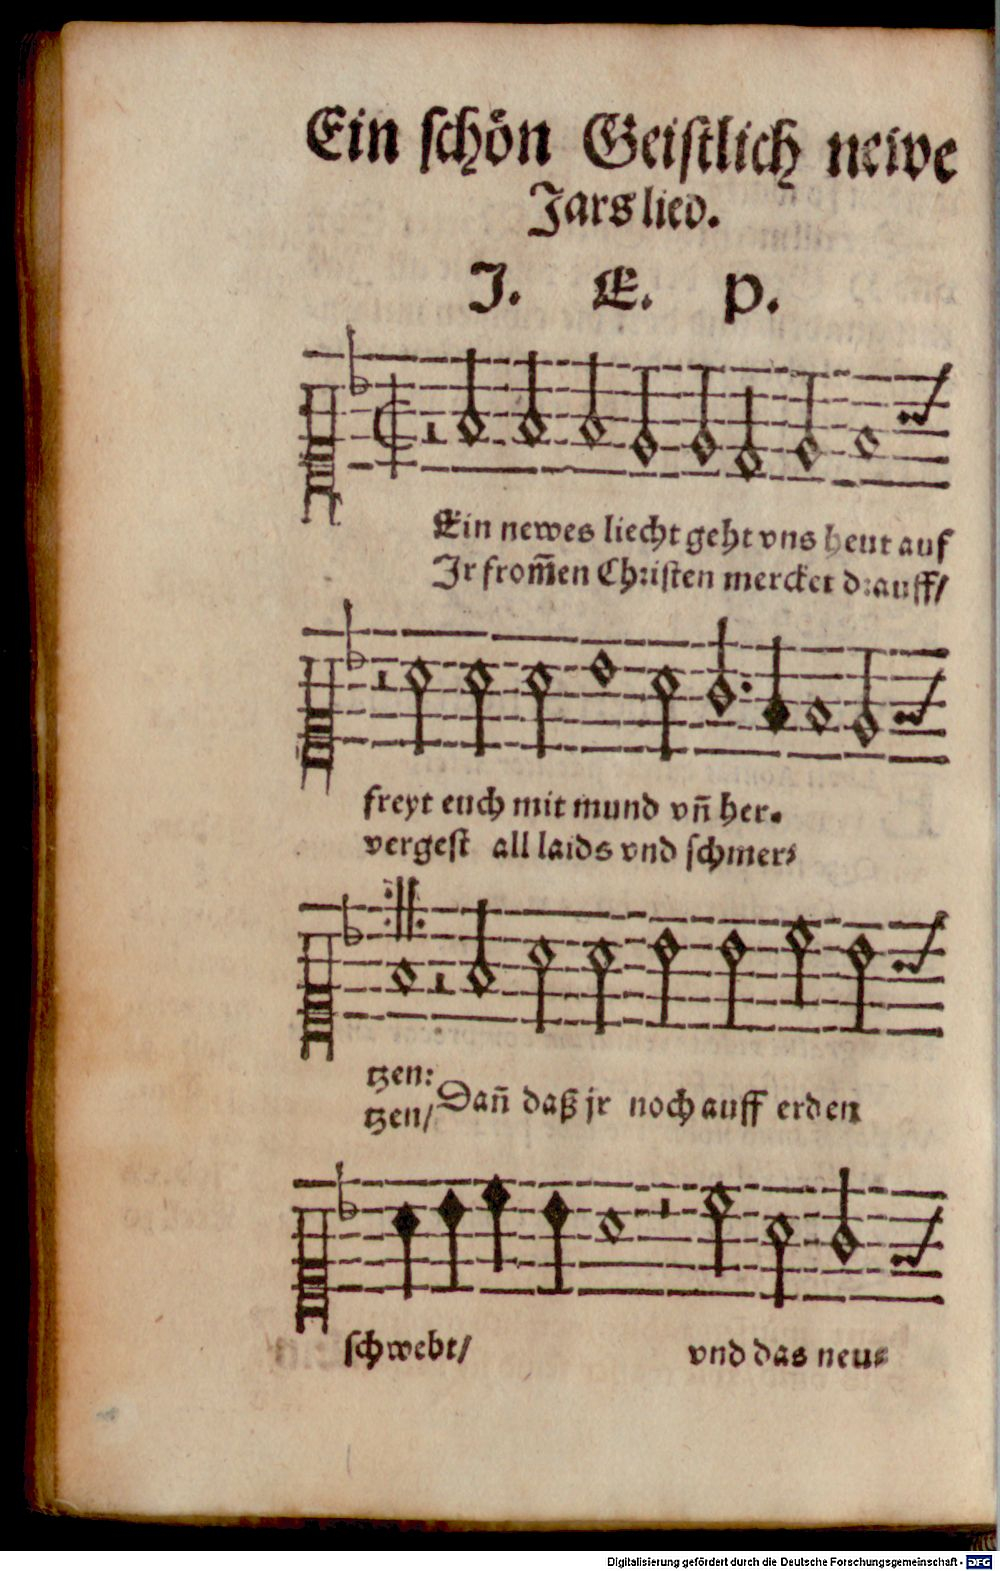 Ein schön Geistlich newe
Jars lied.
J. E. P.
Ein newes liecht geht vns heut auf
Jr from̄en Christen mercket drauff/
freyt euch mit mund vn̄ her⸗
vergest all laids vnd schmer⸗
tzen:
tzen/
Dan̄ daß jr noch auff erden
schwebt/ vnd das neu⸗
Digitalisierung gefördert durch die Deutsche Forschungsgemeinschaft - DFG